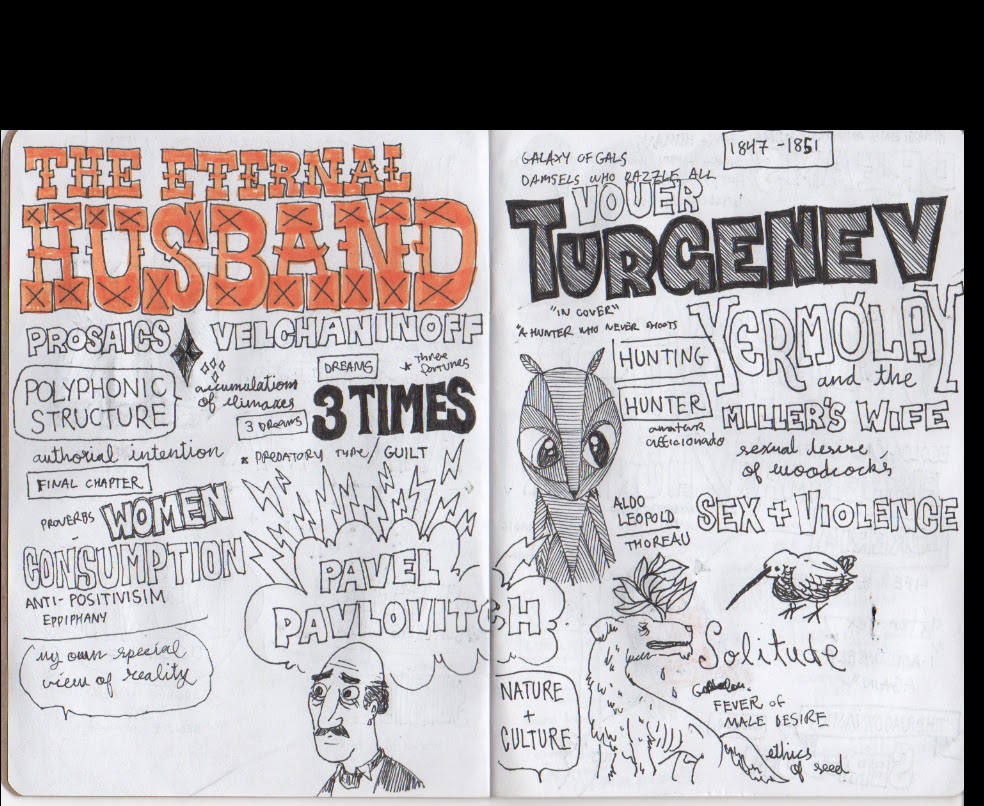 THE ETERNAL
HUSBAND
PROSAICS
VELCHANINOFF
POLYPHONIC
STRUCTURE
accumulations
of climaxes
DREAMS
* Three
3 DREAMS
3 TIMES
authorial intention
* PREDATORY TYPE / GUILT
FINAL CHAPTER
PROVERBS
WOMEN
CONSUMPTION
ANTI-POSITIVISIM
EPPIPHANY
my own special
view of reality
PAVEL
PAVLOVITCH
1847 - 1851
GALAXY OF GALS
DAMSELS WHO DAZZLE ALL
VOUER
TURGENEV
"IN COVER"
"A HUNTER WHO NEVER SHOOTS
HUNTING
HUNTER
amateur
afficionado
YERMÓLAY
and the
MILLER'S WIFE
sexual desire
of woodcocks
ALDO
LEOPOLD
THOREAU
SEX + VIOLENCE
Solitude
FEVER of
MALE DESIRE
NATURE
+
CULTURE
ethics
of seed